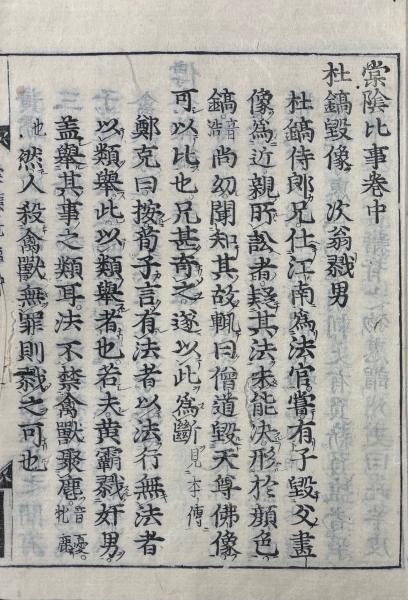 棠陰比事卷中
杜鎬毀像　次翁戮男
杜鎬侍郎兄仕江南爲法官嘗有子毀父畫
像爲近親所訟者疑其法未能決形於顔色
鎬音浩尚幼聞知其故輒曰僧道毀天尊佛像
可以比也兄甚奇之遂以此爲斷見本傳
鄭克曰按荀子言有法者以法行無法者
以類舉此以類舉者也若夫黄霸戮奸男
盖舉其事之類耳法不禁禽獸聚麀音憂牝鹿
也然人殺禽獸無罪則戮之可也